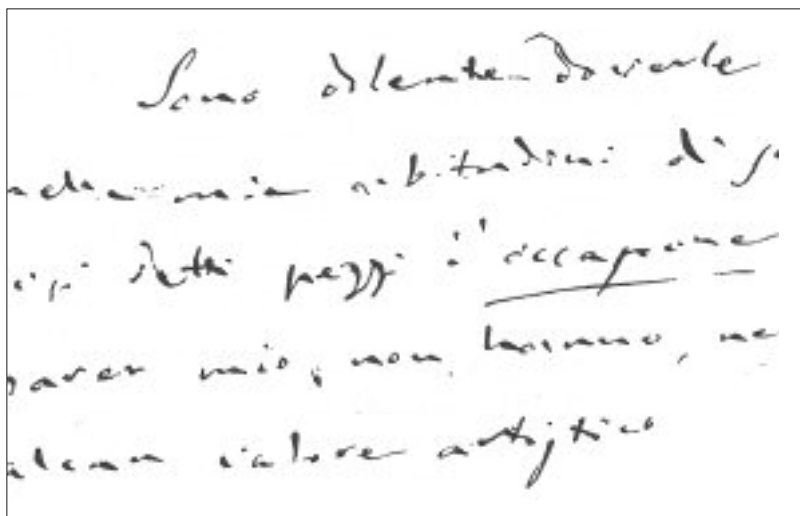 Sono dolente doverle
mia abitudini di
detti pezzi d'occasione
parer mio, non hanno, ne
alcun valore artistico